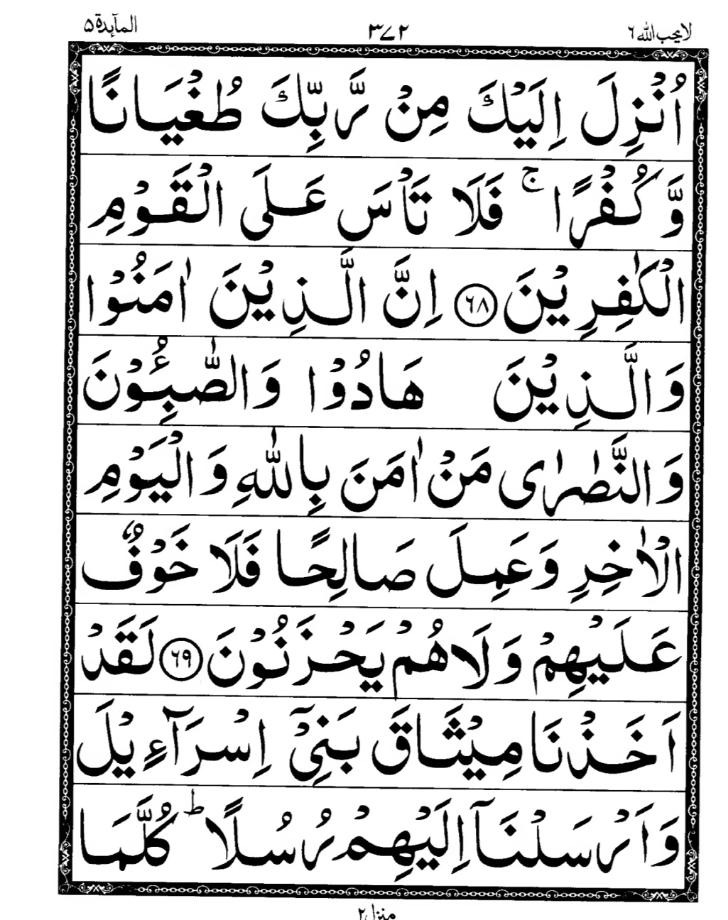 لا یحب اللہ ٦
٣٧٢
المآىِٕدة ٥
اُنْزِلَ اِلَیْكَ مِنْ رَّبِّكَ طُغْیَانًا
وَّ كُفْرًا ۚ فَلَا تَاْسَ عَلَی الْقَوْمِ
الْكٰفِرِیْنَ ﴿٦٨﴾ اِنَّ الَّذِیْنَ اٰمَنُوْا
وَالَّذِیْنَ هَادُوْا وَالصّٰبِـُٔوْنَ
وَالنَّصٰرٰی مَنْ اٰمَنَ بِاللّٰهِ وَ الْیَوْمِ
الْاٰخِرِ وَعَمِلَ صَالِحًا فَلَا خَوْفٌ
عَلَیْهِمْ وَلَا هُمْ یَحْزَنُوْنَ ﴿٦٩﴾ لَقَدْ
اَخَذْنَا مِیْثَاقَ بَنِیْۤ اِسْرَآءِیْلَ
وَاَرْسَلْنَاۤ اِلَیْهِمْ رُسُلًا ؕ كُلَّمَا
منزل ٢